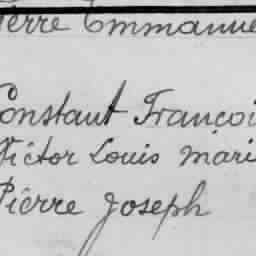 Pierre Emmanue
Constant Françoi
Victor Louis Mari
Pierre Joseph